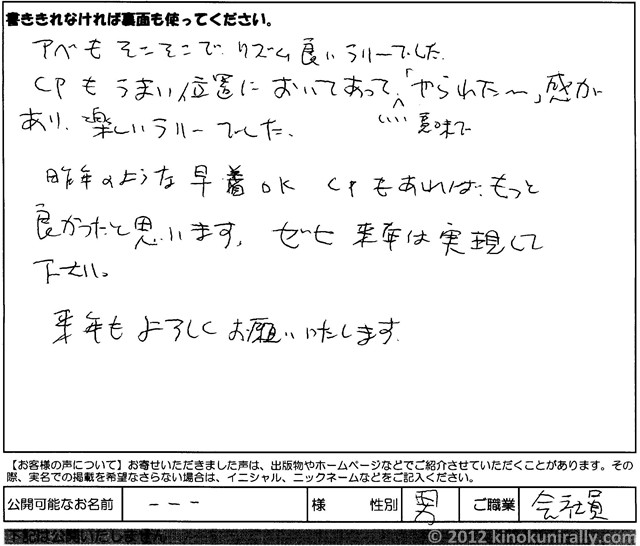 書ききれなければ裏面も使ってください。
アベもそこそこで、リズム良いラリーでした。
CPもうまい位置においてあって、「やられた〜」感が
いい意味で
あり、楽しいラリーでした。
昨年のような早着OK CPもあれば、もっと
良かったと思います。ゼヒ来年は実現して
下さい。
来年もよろしくお願いいたします。
【お客様の声について】お寄せいただきました声は、出版物やホームページなどでご紹介させていただくことがあります。その
際、実名での掲載を希望なさらない場合は、イニシャル、ニックネームなどをご記入ください。
公開可能なお名前 --- 様 性別 男 ご職業 会社員
下記は公開いたしません
© 2012 kinokunirally.com